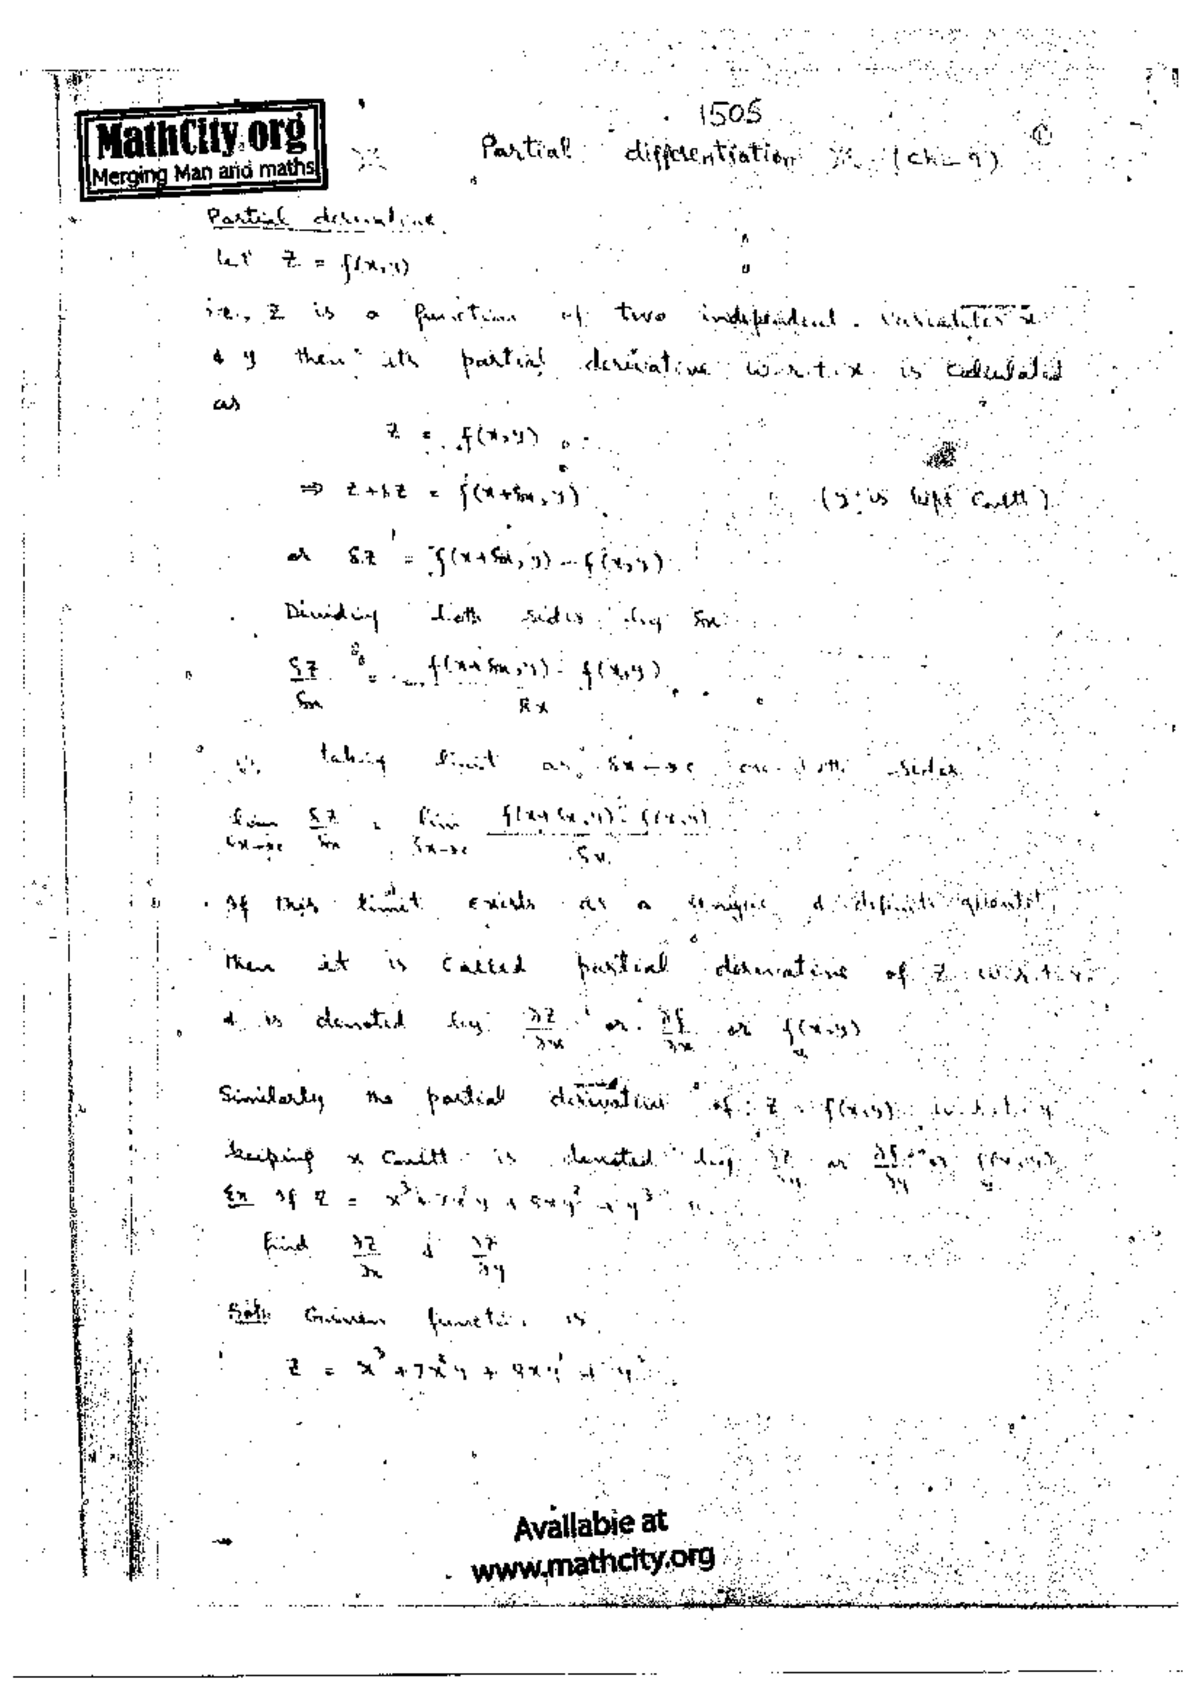 MathCity.org
Merging Man and maths
1505
Partial differentiation (Ch_ 9)
Partial derivative
let Z = f(x,y)
i.e., Z is a function of two independent variables x
& y then its partial derivative w.r.t. x is calculated
as
Z = f(x,y)
⇒ Z+δZ = f(x+δx, y) (y is kept Constt)
or δZ = f(x+δx, y) - f(x,y)
Dividing both sides by δx
δZ/δx = f(x+δx,y) - f(x,y)/δx
taking limit as δx→ on both sides
lim δx→ δZ/δx = lim δx→ f(x+δx,y) - f(x,y)/δx
If this limit exists as a unique & definite
then it is called partial derivative of Z w.r.t.x
& is denoted by ∂Z/∂x or ∂f/∂x or fx(x,y)
Similarly the partial derivative of Z = f(x,y) w.r.t y
keeping x Constt is denoted by ∂Z/∂y or ∂f/∂y or fy(x,y)
Ex If Z = x³ + 7x²y + 8xy² + y³
find ∂Z/∂x & ∂Z/∂y
Soln Given function is
Z = x³ + 7x²y + 8xy² + y³
Available at
www.mathcity.org